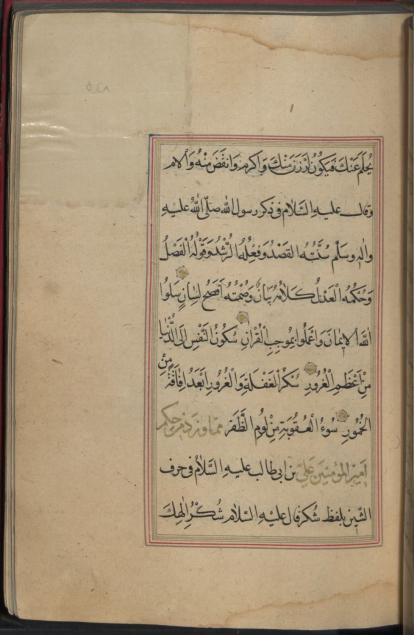 يحلم عنك فيكون أرزن منك وأكرم وأنقص منه وألام
وقال عليه السّلام في ذكر رسول الله صلّى الله عليه
وآله وسلّم سنّته القصد وفعله الرّشد وقوله الفصل
وحكمه العدل كلامه بيان وصمته أفصح لسان سلوا
الله الإيمان واعملوا بموجب القرآن سكون النّفس إلى الدّنيا
من أعظم الغرور سكر الغفلة والغرور أبعد إفاقة من
الخمور سوء العقوبة من لوم الظّفر ممّا ورد من حكم
أمير المؤمنين عليّ بن أبي طالب عليه السّلام في حرف
الشّين بلفظ شكر قال عليه السّلام شكر إلهك